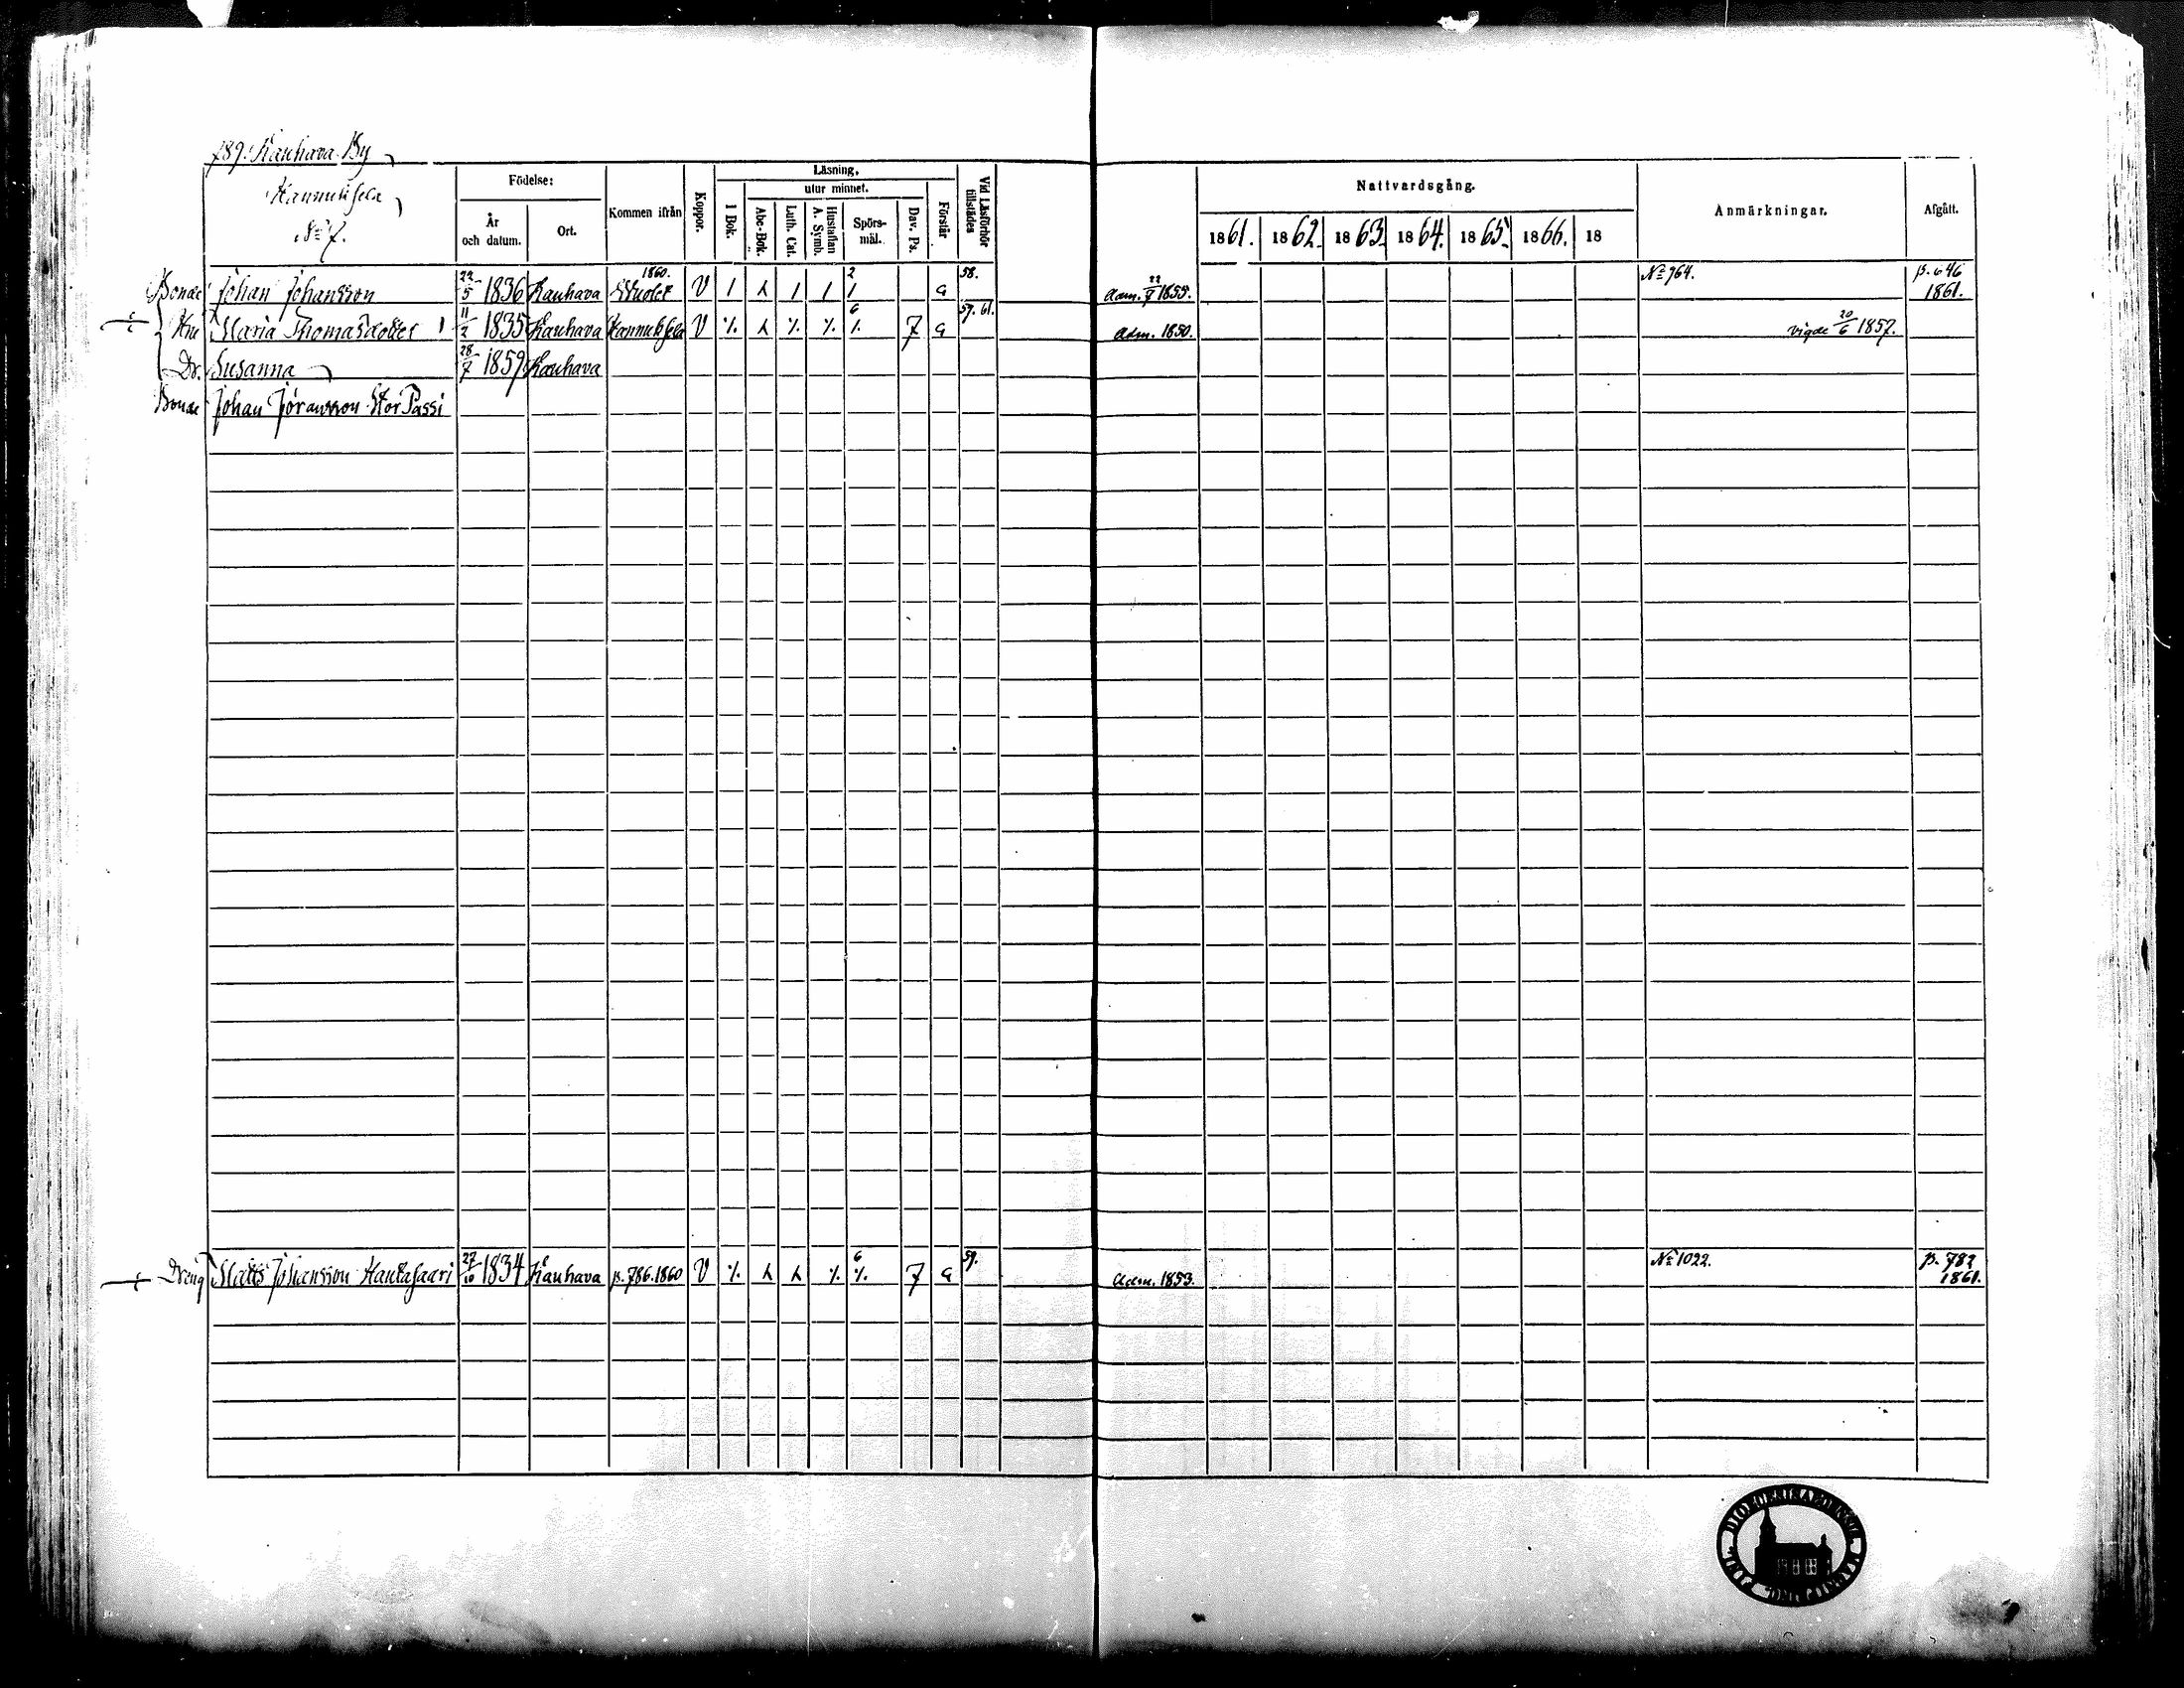 789. Kauhava By
Hannuksela
N:o 7.
Födelse:
År och datum.
Ort.
Kommen ifrån
Koppor.
Läsning,
1 Bok.
utur minnet.
Abc-Bok.
Luth. Cat.
Hustaflan A. Symb.
Spörs-mål.
Dav. Ps.
Förstår
Vid Läsförhör tillstädes
Nattvardsgång.
1861. 1862. 1863. 1864. 1865. 1866. 18
Anmärkningar.
Afgått.
Bonde Johan Johansson 22/5 1836 Kauhava 1860. V 1 1 1 2 1 a 58. Adm. 1855. N:o 964. p. 646 1861.
Hu Maria Thomasdotter 11/2 1835 Kauhava Hannuksela V 6 7 a 59. 61. Adm. 1850. vigde 20/6 1857.
Dr. Susanna 28/7 1859 Kauhava
Bonde Johan Jöransson Stor Passi
Dräng Matts Johansson Hautasaari 27/10 1834 Kauhava p. 786. 1860 V 6 7 a 59. Adm. 1853. N:o 1022. p. 782 1861.